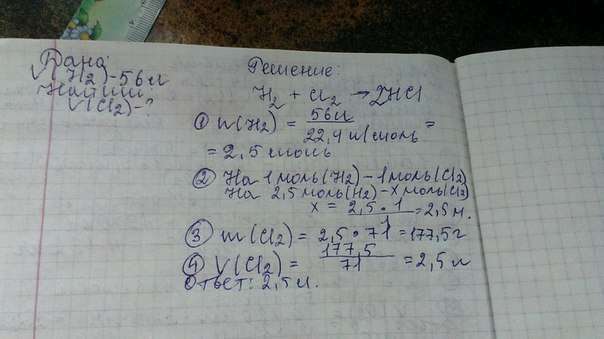 Дано:
V(H2)-56л
Найти:
V(Cl2)-?
Решение:
H2 + Cl2 → 2HCl
① n(H2) = 56л / 22,4 л/моль =
= 2,5 моль
② На 1 моль(H2) - 1 моль(Cl2)
На 2,5 моль(H2) - x моль(Cl2)
x = 2,5 • 1 / 1 = 2,5 м.
③ m(Cl2) = 2,5 • 71 = 177,5 г
④ V(Cl2) = 177,5 / 71 = 2,5 л
Ответ: 2,5 л.